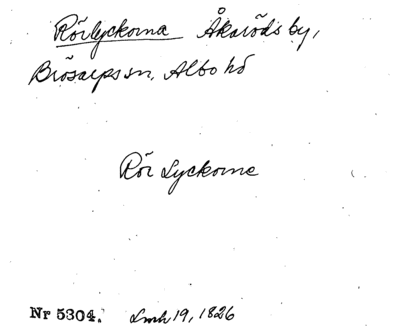 Rörlyckorna Åkaröds by,
Brösarps sn, Albo hd
Rör Lyckorne
Nr 5304. Lmh 19, 1826